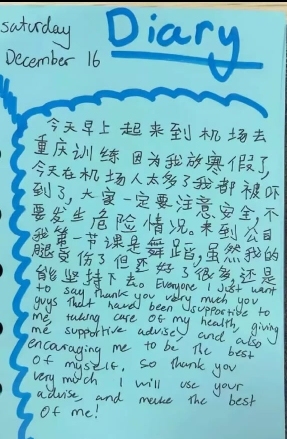 saturday
December 16
Diary
今天早上起来到机场去
重庆训练因为我放寒假了,
今天在机场人太多了我都被吓
到了,大家一定要注意安全,不
要发生危险情况。来到公司
我第一节课是舞蹈,虽然我的
腿受伤了但还好了很多,还是
能坚持下去。Everyone I just want
to say thank you very much you
guys that hard been supportive to
me taking care of my health, giving
me supportive advise, and also
encouraging me to be the best
of myself. So thank you
very much I will use your
advise and make the best
of me!